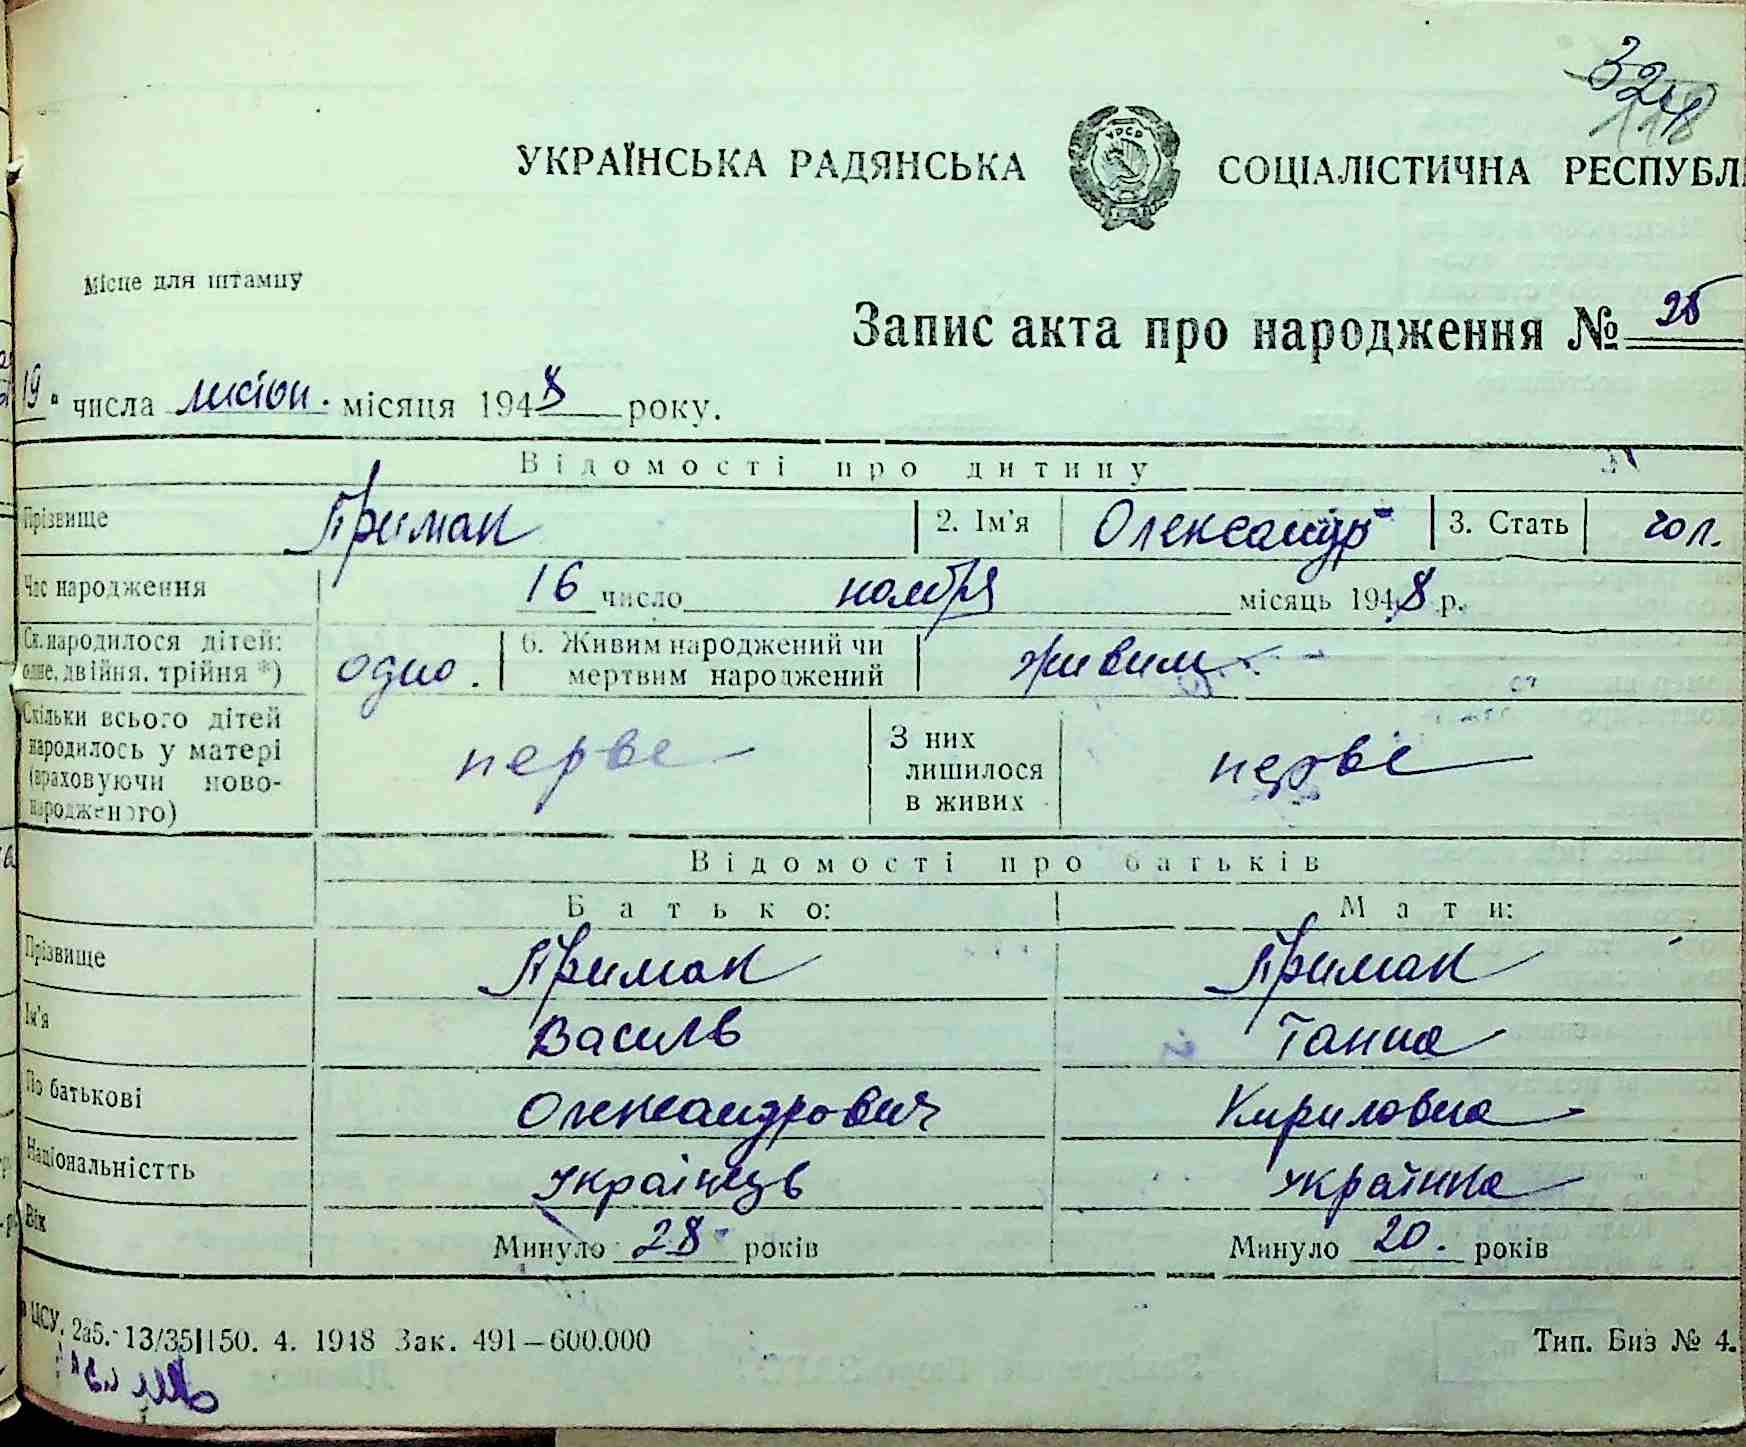 УКРАЇНСЬКА РАДЯНСЬКА УРСР СОЦІАЛІСТИЧНА РЕСПУБЛІ
Місце для штампу
Запис акта про народження № 25
19 " числа листоп. місяця 1948 року.
Відомості про дитину
Прізвище Примак 2. Ім'я Олександр 3. Стать чол.
Час народження 16 число ноября місяць 1948 р.
Ск. народилося дітей: одне, двійня, трійня *) одно. 6. Живим народжений чи мертвим народжений живим
Скільки всього дітей народилось у матері (враховуючи новонародженого) перве З них лишилося в живих перве
Відомості про батьків
Батько: Мати:
Прізвище Примак Примак
Ім'я Василь Ганна
По батькові Олександрович Кириловна
Національністть Українець українка
Вік Минуло 28 років Минуло 20. років
ЦСУ. 2а5.-13/35|150. 4. 1948 Зак. 491—600.000 Тип. Биз № 4.